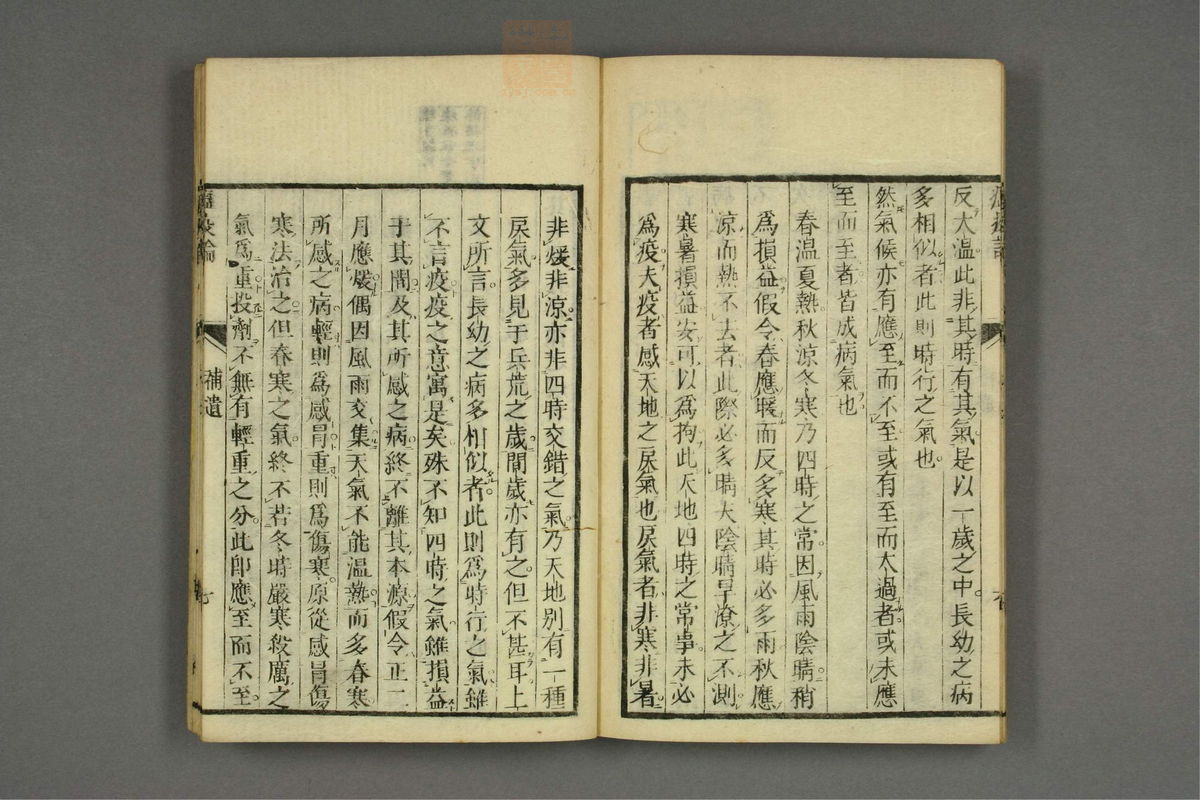 反大温此非其時有其氣是以一歲之中長幼之病
多相似者此則時行之氣也
然氣候亦有應至而不至或有至而太過者或未應
至而至者皆成病氣也
春温夏熱秋涼冬寒乃四時之常因風雨陰晴稍
爲損益假令春應暖而反多寒其時必多雨秋應
涼而熱不去者此際必多晴夫陰晴旱潦之不測
寒暑損益安可以爲拘此天地四時之常事未必
爲疫夫疫者感天地之戾氣也戾氣者非寒非暑
非煖非涼亦非四時交錯之氣乃天地別有一種
戾氣多見于兵荒之歲間歲亦有之但不甚耳上
文所言長幼之病多相似者此則爲時行之氣雖
不言疫疫之意寓是矣殊不知四時之氣雖損益
于其間及其所感之病終不離其本源假令正二
月應煖偶因風雨交集天氣不能温熱而多春寒
所感之病輕則爲感冒重則爲傷寒原從感冒傷
寒法治之但春寒之氣終不若冬時嚴寒殺厲之
氣爲重投劑不無有輕重之分此即應至而不至
温疫論
補遺
七